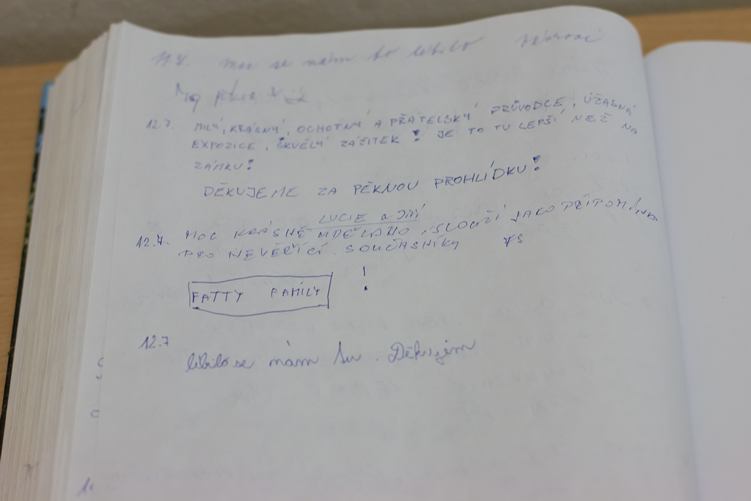 moc se nám to líbilo
12.7. MILÝ, KRÁSNÝ, OCHOTNÝ A PŘÁTELSKÝ PRŮVODCE, ÚŽASNÁ
EXPOZICE, SKVĚLÝ ZÁŽITEK! JE TO TU LEPŠÍ NEŽ NA
ZÁMKU!
DĚKUJEME ZA PĚKNOU PROHLÍDKU!
LUCIE a JIŘÍ
12.7. MOC KRÁSNĚ UDĚLÁNO, SLOUŽÍ JAKO PŘIPOMÍNKA
PRO NEVĚŘÍCÍ SOUČASNÍKY
FATTY FAMILY !
12.7
líbilo se nám tu. Děkujem